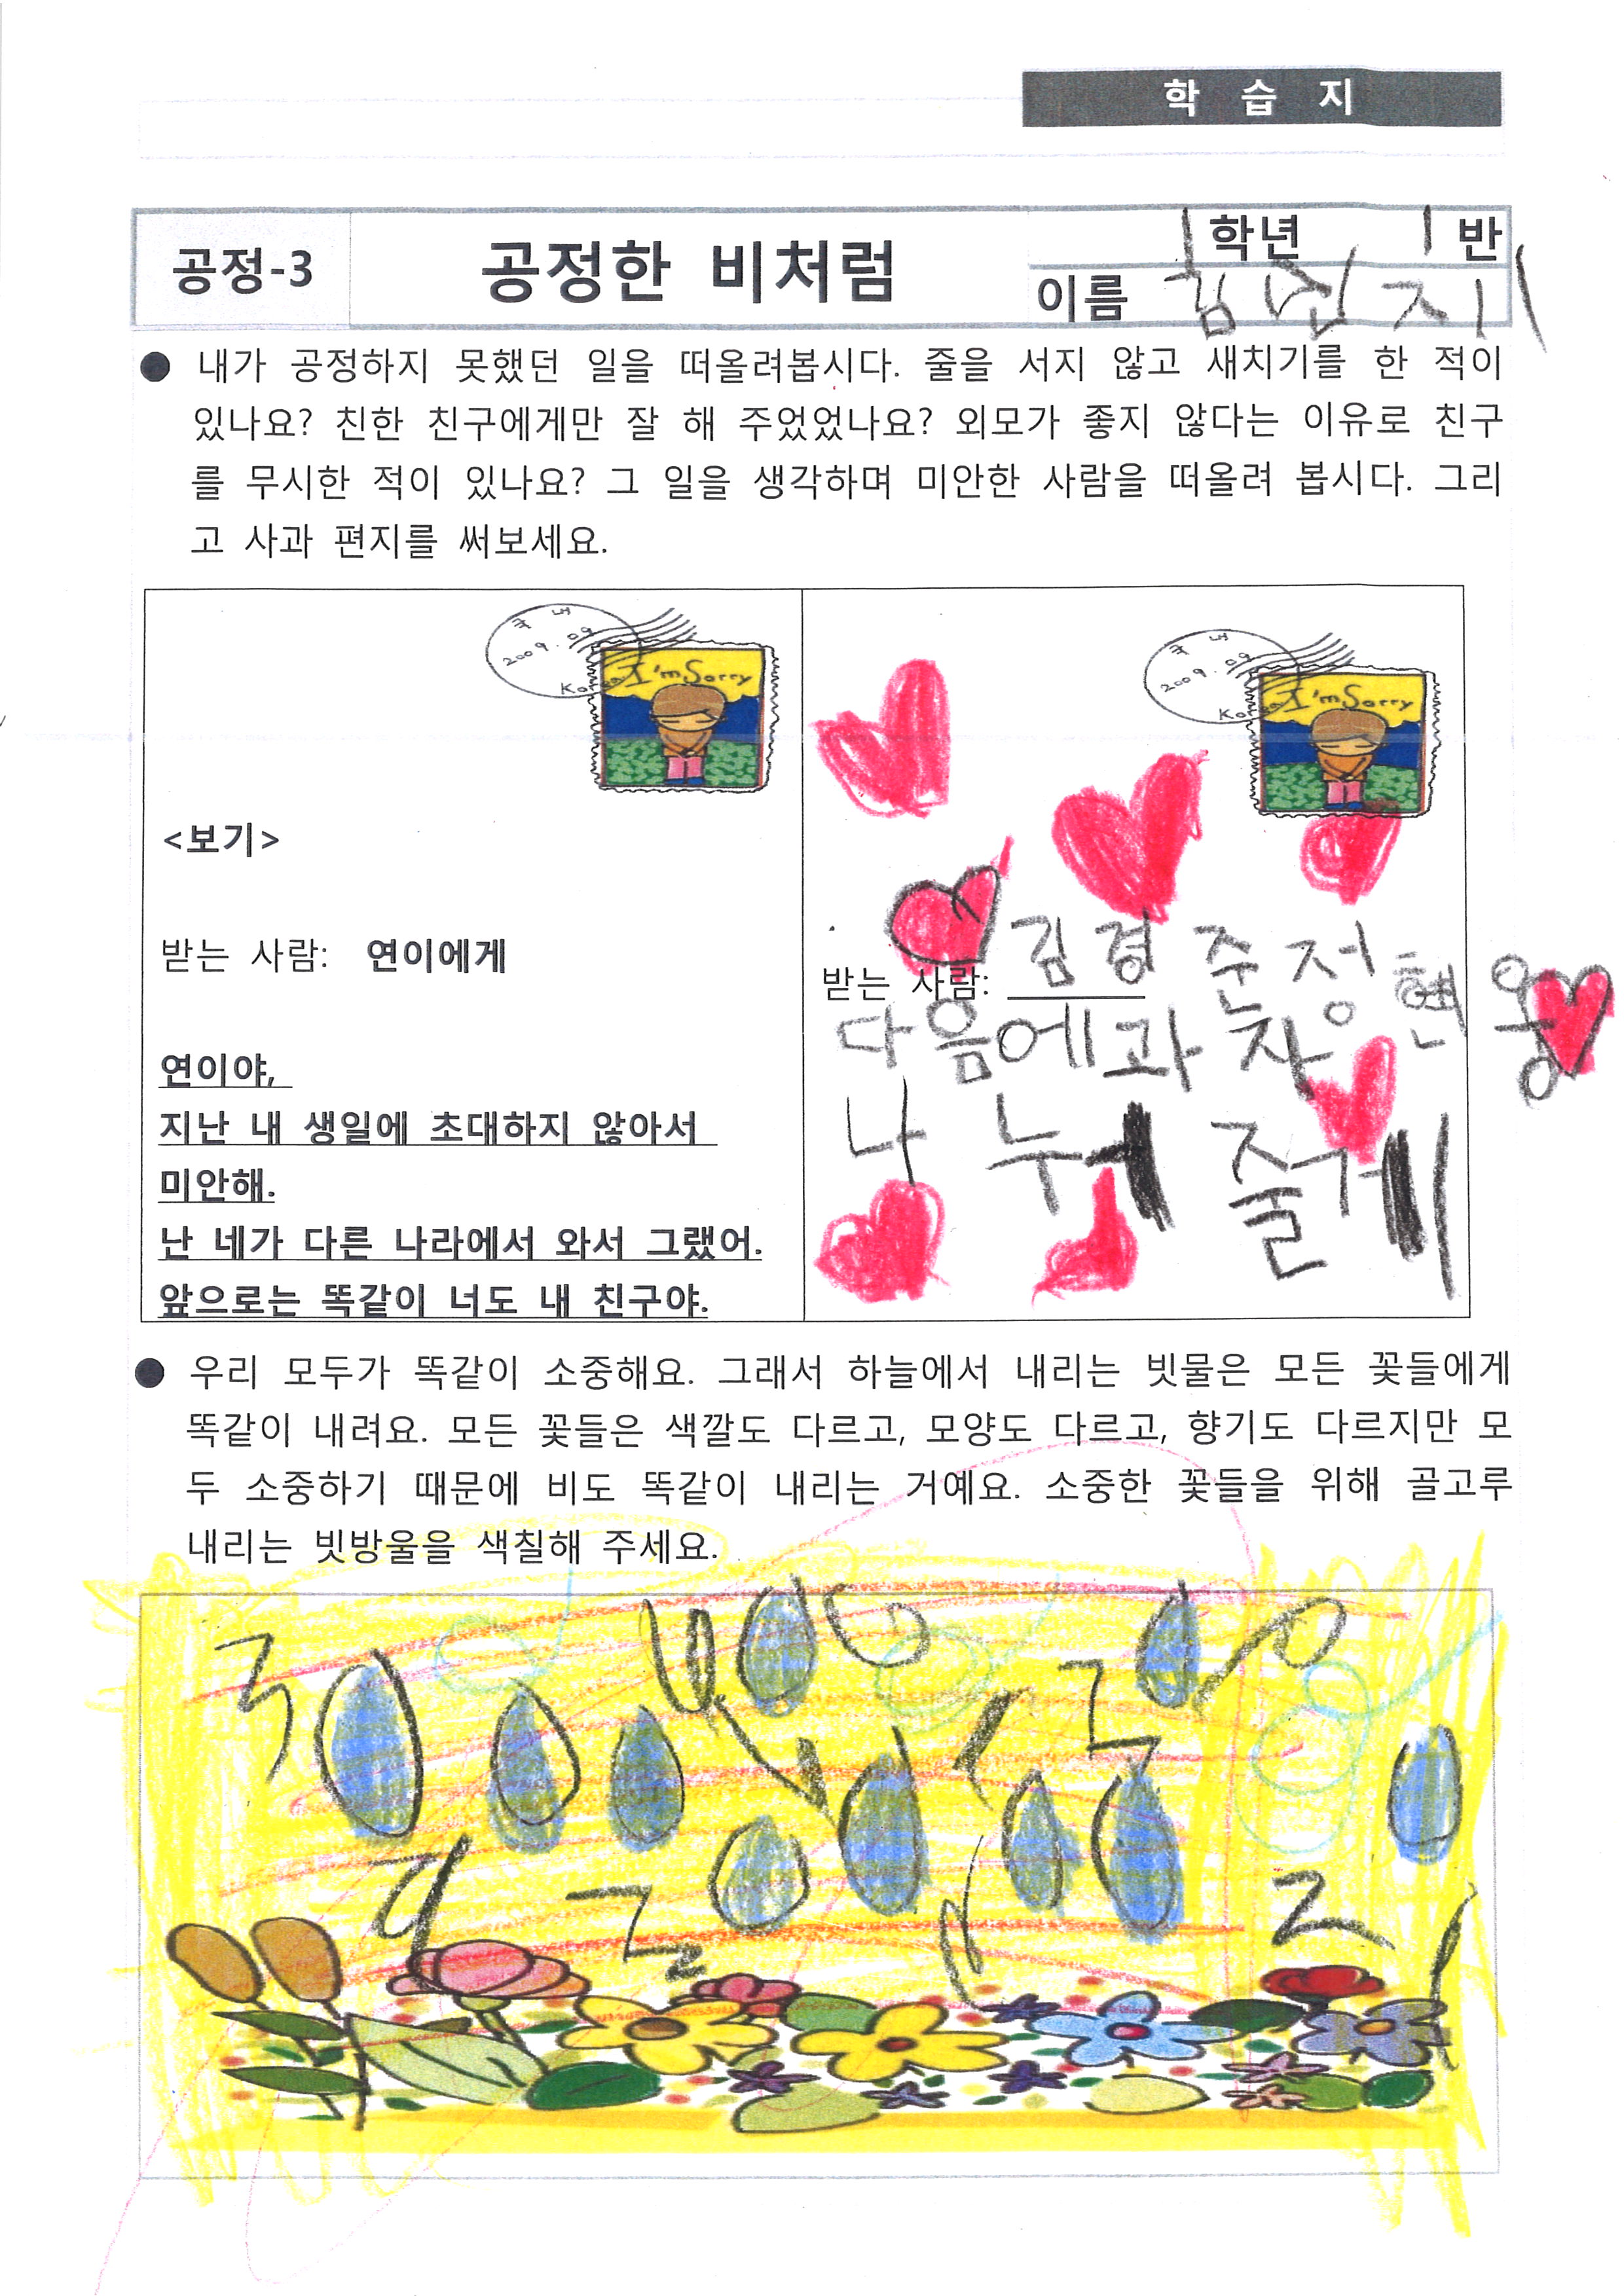 학 습 지
공정-3
공정한 비처럼
1 학년 1 반
이름
● 내가 공정하지 못했던 일을 떠올려봅시다. 줄을 서지 않고 새치기를 한 적이
있나요? 친한 친구에게만 잘 해 주었었나요? 외모가 좋지 않다는 이유로 친구
를 무시한 적이 있나요? 그 일을 생각하며 미안한 사람을 떠올려 봅시다. 그리
고 사과 편지를 써보세요.
국내
2009. 09
Korea
I'm Sorry
<보기>
받는 사람: 연이에게
연이야,
지난 내 생일에 초대하지 않아서
미안해.
난 네가 다른 나라에서 와서 그랬어.
앞으로는 똑같이 너도 내 친구야.
국내
2009. 09
Korea
I'm Sorry
받는 사람: 김경준 정현웅
다음에 과자
나누어 줄게
● 우리 모두가 똑같이 소중해요. 그래서 하늘에서 내리는 빗물은 모든 꽃들에게
똑같이 내려요. 모든 꽃들은 색깔도 다르고, 모양도 다르고, 향기도 다르지만 모
두 소중하기 때문에 비도 똑같이 내리는 거예요. 소중한 꽃들을 위해 골고루
내리는 빗방울을 색칠해 주세요.